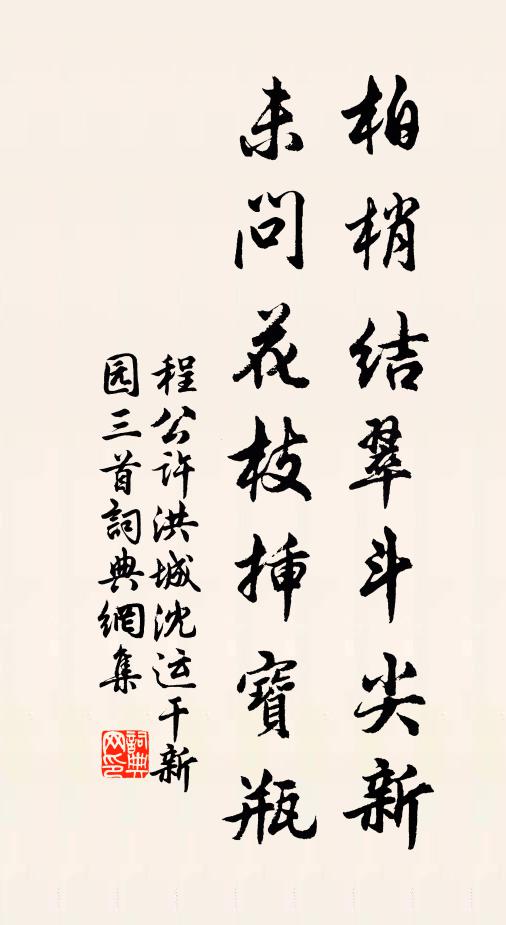 柏梢结翠斗尖新
未问花枝插寶瓶
程公许洪城沈运干新
园三首詞典網集
詞典
网印